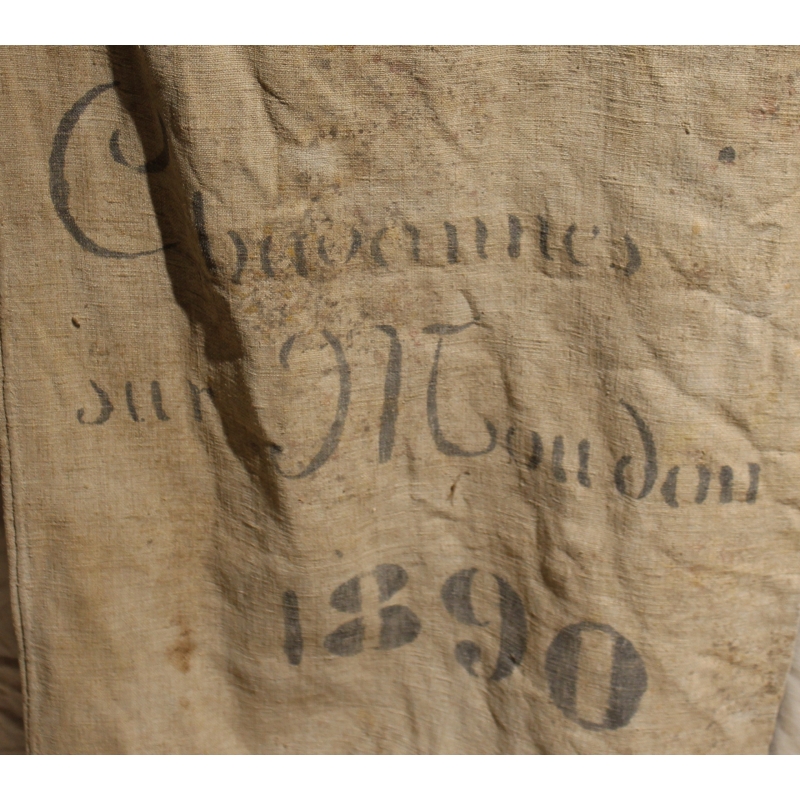 Chavannes
sur Moudon
1890